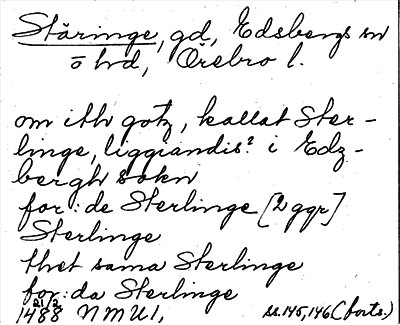 Stäringe, gd, Edsbergs sn
ö hd, Örebro l.
om ith gotz, kallat Ster-
linge, liggiandis? i Edz-
bergh sokn
for: de Sterlinge [2 ggr]
Sterlinge
thet sama Sterlinge
for: da Sterlinge
21/2
1488 NMU1, ss. 145, 146 (forts.)